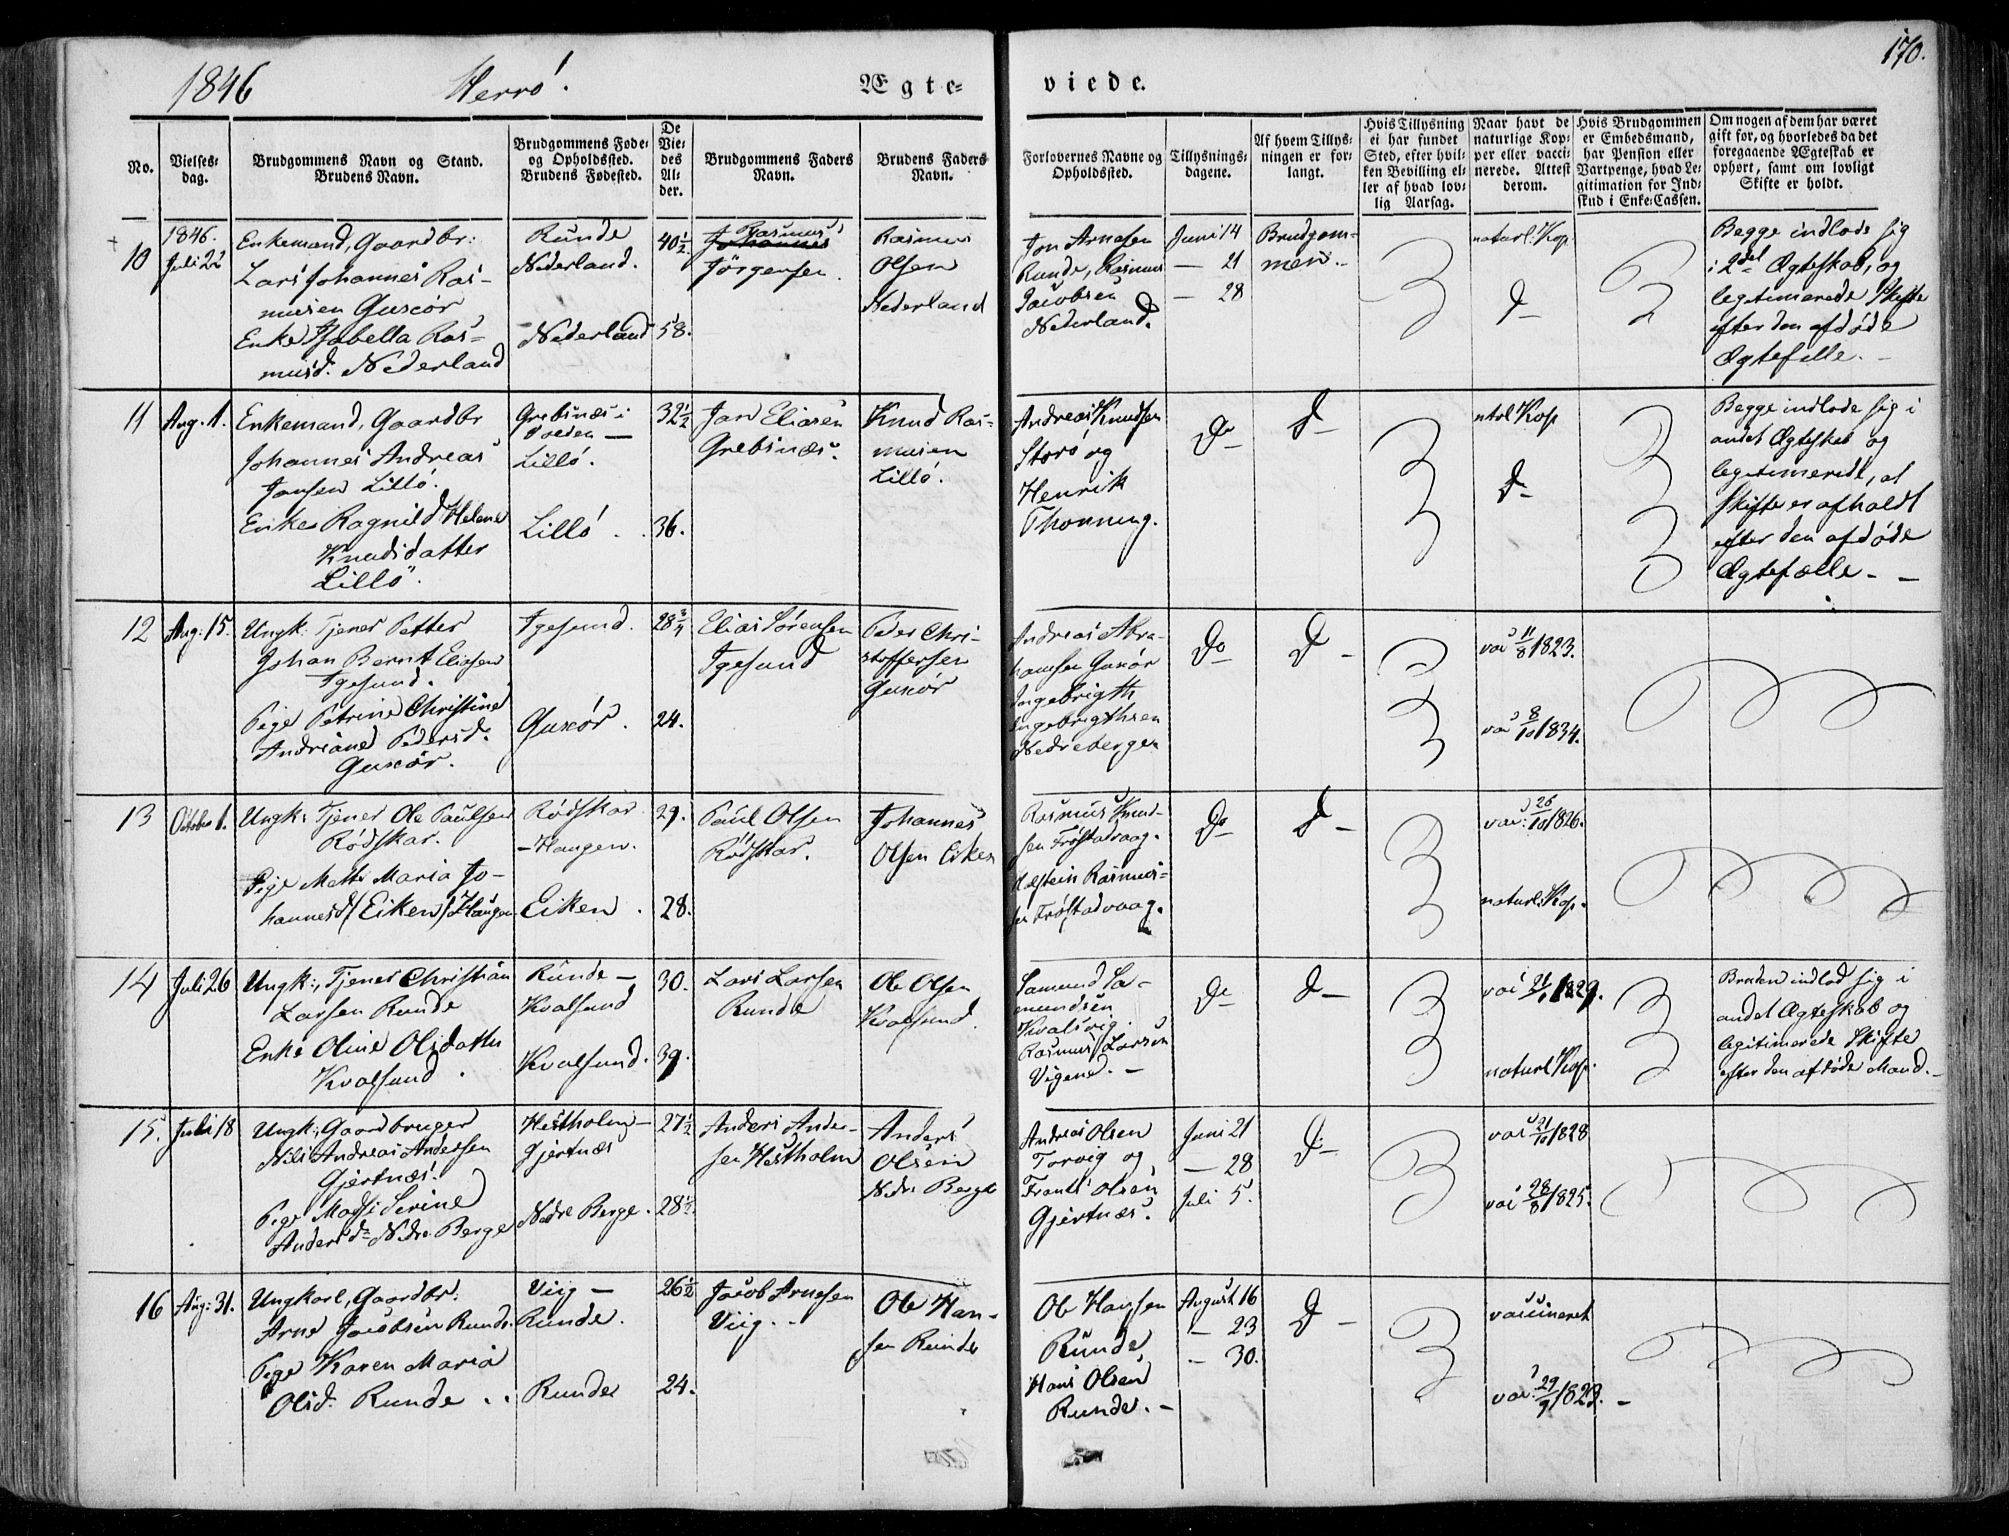 170.
1846 Herrö.
Ægte-
viede.
No.
Vielses-
dag.
Brudgommens Navn og Stand.
Brudens Navn.
Brudgommens Føde-
og Opholdssted.
Brudens Fødested.
De
Vie-
des
Al-
der.
Brudgommens Faders
Navn.
Brudens Faders
Navn.
Forlovernes Navne og
Opholdssted.
Tillysnings-
dagene.
Af hvem Tillys-
ningen er for-
langt.
Hvis Tillysning
ei har fundet
Sted, efter hvil-
ken Bevilling el-
ler af hvad lov-
lig Aarsag.
Naar havt de
naturlige Kop-
per eller vacci-
nerede. Attest
derom.
Hvis Brudgommen
er Embedsmand,
har Pension eller
Vartpenge, hvad Le-
gitimation for Ind-
skud i Enke-Cassen.
Om nogen af dem har været
gift før, og hvorledes da det
foregaaende Ægteskab er
ophørt, samt om lovligt
Skifte er holdt.
10
1846.
Juli 22
Enkemand, Gaardbr:
Lars Johannes Ras-
musen Guscör
Enke Isabella Ras-
musd. Nederland
Runde
Nederland.
Nederland
40 1/2
58.
Rasmus
Johannes
Jörgensen.
Rasmus
Olsen
Nederland
Jon Arnesen
Runde, Rasmus
Jacobsen
Nederland.
Juni 14
— 21
— 28
Brudgom-
men.
naturl. Kop
Do
Begge indlode sig
i 2det Ægteskab, og
legitimerede Skifte
efter den afdöde
Ægtefelle. -
11
Aug. 1.
Enkemand, Gaardbr
Johannes Andreas
Jansen Lillö.
Enke Ragnild Helene
Knudsdatter
Lillö.
Grebsnæs i
Volden —
Lillö.
Lillö.
32 1/2
36.
Jan Eliasen
Grebsnæs.
Knud Ras-
musen
Lillö.
Andreas Knudsen
Storö og
Henrik
Thonning.
Do
Do
ntrl Kop
Do
Begge indlode sig i
andet Ægteskab og
legitimeredt, at
Skifte er afholdt
efter den afdöde
Ægtefælle. —
12
Aug: 15.
Ungk: Tjener Petter
Johan Bernt Eliasen
Igesund.
Pige Petrine Christine
Andriane Pedersd.
Guscör.
Igesund.
Guscör.
28 3/4
24.
Elias Sörensen
Igesund
Peder Chri-
stoffersen
Guscör
Andreas Abra-
hamsen Guscör
Ingebrigth
Ingebrigthsen
Nedreberge
Do
Do
vac 11/8 1823.
vac 8/10 1834.
13
October 1.
Ungk: Tjener Ole Paulsen
Rödskar.
Pige Mette Maria Jo-
hannesd (Eiken) Haugen
Rödskar
- Haugen.
Eiken.
29.
28.
Paul Olsen
Rödskar.
Johannes
Olsen Eiken
Rasmus Knud-
sen Fröstadvaag.
Holstein Rasmus-
sen Fröstadvaag.
Do
Do
vac: 26/10 1826.
naturl: Kop.
14
Juli 26
Ungk:, Tjener Christian
Larsen Runde
Enke Oline Olsdatter
Kvalsund.
Runde —
Kvalsund
Kvalsund.
30.
39.
Lars Larsen
Runde
Ole Olsen
Kvalsund.
Samund Sa-
mundsen
Kvalsvig.
Rasmus Larsen
Vigene. -
Do
Do
vac 21/ 1829.
naturl Kop.
Bruden indlod sig i
andet Ægteskab og
legitimerede Skifte
efter den afdöde Mand. -
15.
Juli 18
Ungk:, Gaardbruger
Nils Andreas Andersen
Gjertnæs.
Pige Mads Serine
Andersd. Nedre Berge
Hestholm —
Gjertnæs
Nedre Berge.
27 1/2
28 1/2
Anders Ander-
sen Hestholm
Anders
Olsen
Nedre Berge
Andreas Olsen
Torvig og
Frants Olsen
Gjertnæs.
Juni 21
— 28
Juli 5.
Do
vac 21/10 1828
vac 28/8 1825.
16
Aug: 31.
Ungkarl, Gaardbr:
Arne Jacobsen Runde.
Pige Karen Maria
Olsd. Runde..
Viig —
Runde.
Runde
26 1/2
24.
Jacob Arnesen
Viig.
Ole Han-
sen Runde
Ole Hansen
Runde
Hans Olsen
Runde. -
August 16
— 23
— 30.
Do
vaccineret
vac: 29/9 1823. -